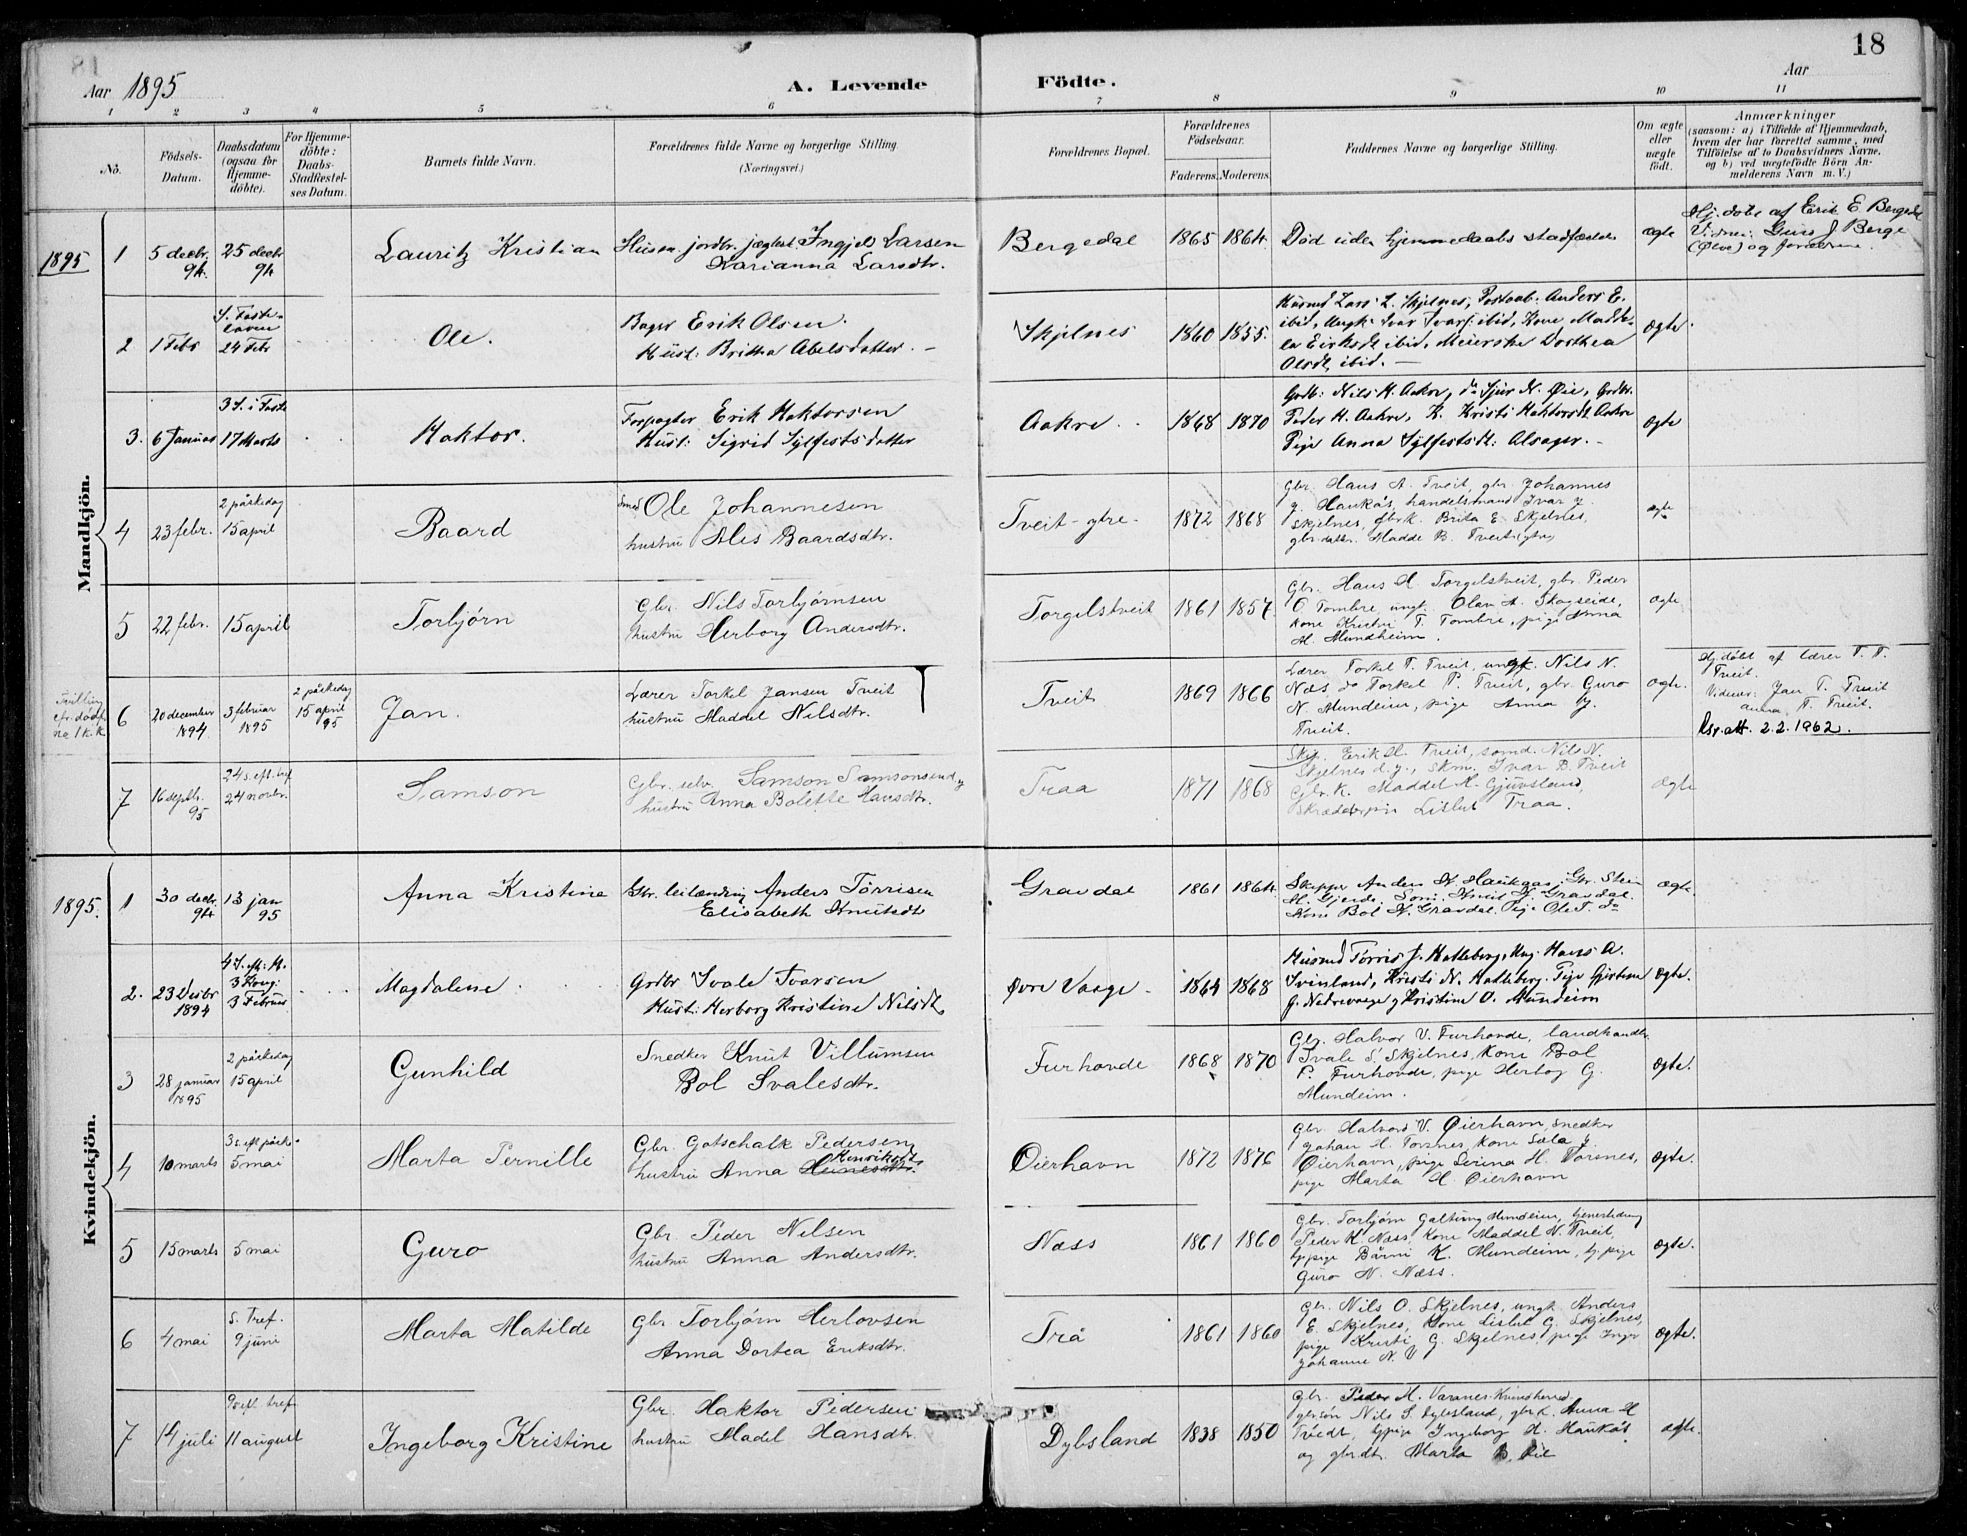 18
Aar 1895
A. Levende Födte.
Aar
1 2 3 4 5 6 7 8 9 10 11
No.
Födsels-Datum.
Daabsdatum (ogsaa for Hjemme-döbte).
For Hjemme-döbte: Daabs-Stadfæstel-ses Datum.
Barnets fulde Navn.
Forældrenes fulde Navne og borgerlige Stilling. (Næringsvei.)
Forældrenes Bopæl.
Forældrenes Födselsaar.
Faderens. Moderens.
Faddernes Navne og borgerlige Stilling.
Om ægte eller uægte födt.
Anmærkninger
(saasom: a) i Tilfælde af Hjemmedaab,
hvem der har forrettet samme, med
Tilföielse af to Daabsvidners Navne,
og b) ved uægtefödte Börn An-
melderens Navn m. V.)
Mandkjön.
1895
1 5 decbr. 94. 25 decbr 94 Lauritz Kristian
Husm. jordbr. Ingjeld Larsen
Marianna Larsdtr.
Bergedal 1865 1864. Død uden hjemmedaabs stadfæstelse ægte
Hj. døbt af Erik E. Bergedal
Vidner: Guro J. Berge
(Ølve) og forældrene.
2 1 Febr S. Faste-laven 24 Febr Ole.
Bager Erik Olsen.
Hust: Britha Abelsdatter. —
Skjelnes 1860 1855.
Husmd Lars L. Skjelnes, Postaab. Anders E.
ibid, Ungk. Ivar Ivars. ibid, Kone Madde-
la Eriksdt ibid, Meierske Dorthea
Olsdt, ibid. —
ægte
3. 6 Januar 3 S. i Faste 17 Marts Haktor.
Forpagter Erik Haktorsen
Hust: Sigrid Sylfestsdatter
Aakre. 1868 1870
Grdb: Nils H. Aakre, do Sjur N. Øie, Grdbr.
Peder H. Aakre, K. Kristi Haktorsdt. Aakre
Pige Anna Sylfestsdt: Alsager. –
ægte
4 23 febr. 2 påskedag 15 april Baard
Smed Ole Johannesen
hustru Alis Baardsdtr.
Tveit-ytre. 1872 1868
Gbr. Hans A. Tveit, gbr. Johannes
J. Haukås, handelsmand Ivar J.
Skjelnes, gbrk. Brita E. Skjelnes,
gbr.datter. Madde B. Tveit (ytre)
ægte
5 22 febr. 15 april Torbjørn
Gbr. Nils Torbjørnsen
hustru Herborg Andersdtr.
Torgelstveit 1861 1857.
Gbr. Hans H. Torgelstveit, gbr. Peder
O. Tombre, ungk. Olav A. Skogseide,
kone Kristni T. Tombre, pige Anna
M. Mundheim.
ægte
6 20 december 1894 3 februar 1895 2 påskedag 15 april 95 Jan.
Lærer Torkel Jansen Tveit
hustru Maddel Nilsdtr.
Tveit 1869 1866
Lærer Torkel T. Tveit, ungk. Nils N.
Næs, do Torkel P. Tveit, gbr. Guro
N. Mundeim, pige Anna J.
Tveit.
ægte.
Hj.døbt af lærer T. T.
Tveit.
Vidner: Jan T. Tveit
Anna T. Tveit.
2.2.1962.
7 16 septbr. 95 24 s. eft. tref 24 novbr. Samson
Gbr. selv. Samson Samsonsen d.y
hustru Anna Bolette Hansdtr.
Traa 1871 1868
Erik H. Tveit, sømd. Nils N.
Skjelnes d.y., Skm. Ivar B. Tveit
Gbr. k. Maddel H. Gjuvsland,
Skræderpige Lisbet Traa.
ægte
Kvindekjön.
1895.
1 30 decbr. 94 13 jan 95 Anna Kristine
Gbr. leilænding Anders Tørrisen
Elisabeth Knutsdtr
Gravdal 1861 1864.
Skipper Anders H. Haukaas, Gbr. Stein
H. Gjerde. Søm. Knut K. Gravdal.
Kone Bol K. Gravdal. Pige Ole T. do
ægte.
2. 23 Desbr 1894 3 Februar Magdalene.
Grdbr Svale Ivarsen
Hust: Herborg Kristine Nilsdt.
Øvre Vaage. 1864 1868
Husmd Tørris J. Hatleberg, Ung. Hans A.
Svinland, Kristi N. Hatleberg. Pige Gjertine
J. Nedrevaage og Kristine O. Mundeim
ægte.
3 28 januar 1895 2 påskedag 15 april Gunhild
Snedker Knut Villumsen
Bol Svalesdtr.
Furhovde 1868 1870
Gbr. Halvor V. Furhovde, landhandler
Svale S. Skjelnes, kone Bol
P. Furhovde, pige Herbog G.
Mundeim.
ægte.
4 10 marts 3 s. eft påske. 5 mai Marta Pernille
Gbr. Gotschalk Pedersen
hustru Anna Henriksdt.
Øierhavn 1872 1876
Gbr Halvord V. Øierhavn, snedker
Johan H. Torsnes, kone Sæla J.
Øierhavn, pige Serina H. Torsnes,
pige Marta H. Øierhavn
ægte.
5 15 marts 5 mai Guro
Gbr. Peder Nilsen
hustru Anna Andersdtr.
Næss 1861 1860
Gbr. Torbjørn Galtung Mundeim,
Peder K. Næss, kone Maddel N. Tveit,
pige Bårni K. Mundeim, pige
Guro N. Næss.
ægte.
6 4 mai S. Tref. 9 juni Marta Matilde
Gbr Torbjørn Herlovsen
Anna Dortea Eriksdtr.
Trå 1861 1860
Gbr. Nils O. Skjelnes, ungk. Anders
E. Skjelnes, kone Lisbet G. Skjelnes,
pige Kristi G. Skjelnes, pige Inger
Johanne N. V
ægte.
7 14 juli 9 s eft. tref 11 august Ingeborg Kristine
Gbr. Haktor Pedersen
hustru Madel Hansdtr.
Dybsland 1838 1850
Gbr. Peder M. Varanes Kvindherred
gbrsøn Nils S. Dybsland, gbr.k. Anna H
pige Ingeborg H. Haukås
og gbr.dt. Marta B. Øie
ægte.